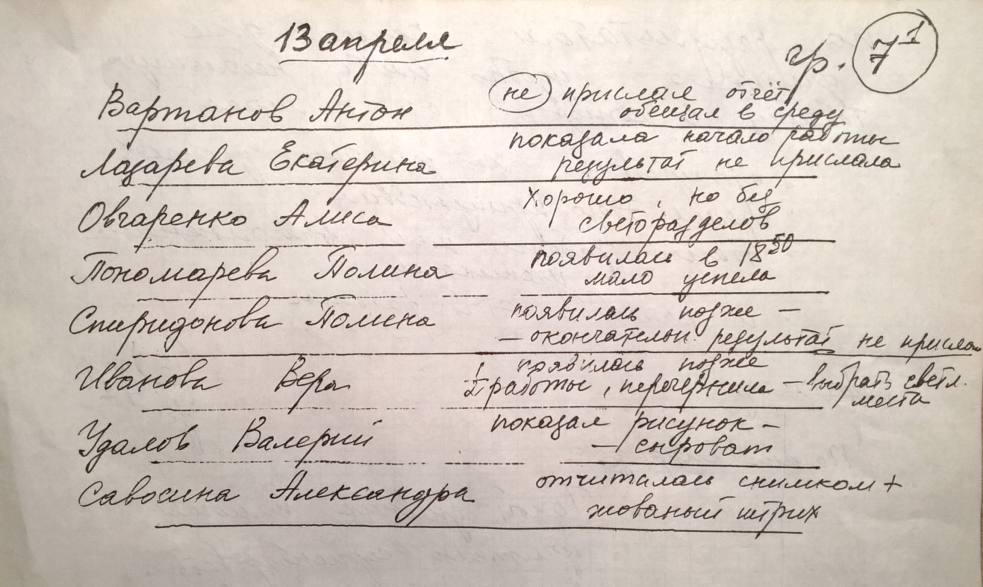 13 апреля
гр. 7¹
Вартанов Антон не прислал отчёт
обещал в среду
Лазарева Екатерина показала начало работы
результат не прислала
Овчаренко Алиса Хорошо, но без
светоразделов
Пономарева Полина появилась в 18⁵⁰
мало успела
Спиридонова Полина появилась позже –
– окончательн. результат не прислал
Иванова Вера появилась позже
2 работы, перечернила – выбрать светл.
места
Удалов Валерий показал рисунок –
– сыроват
Савосина Александра отчиталась снимком +
жованый штрих